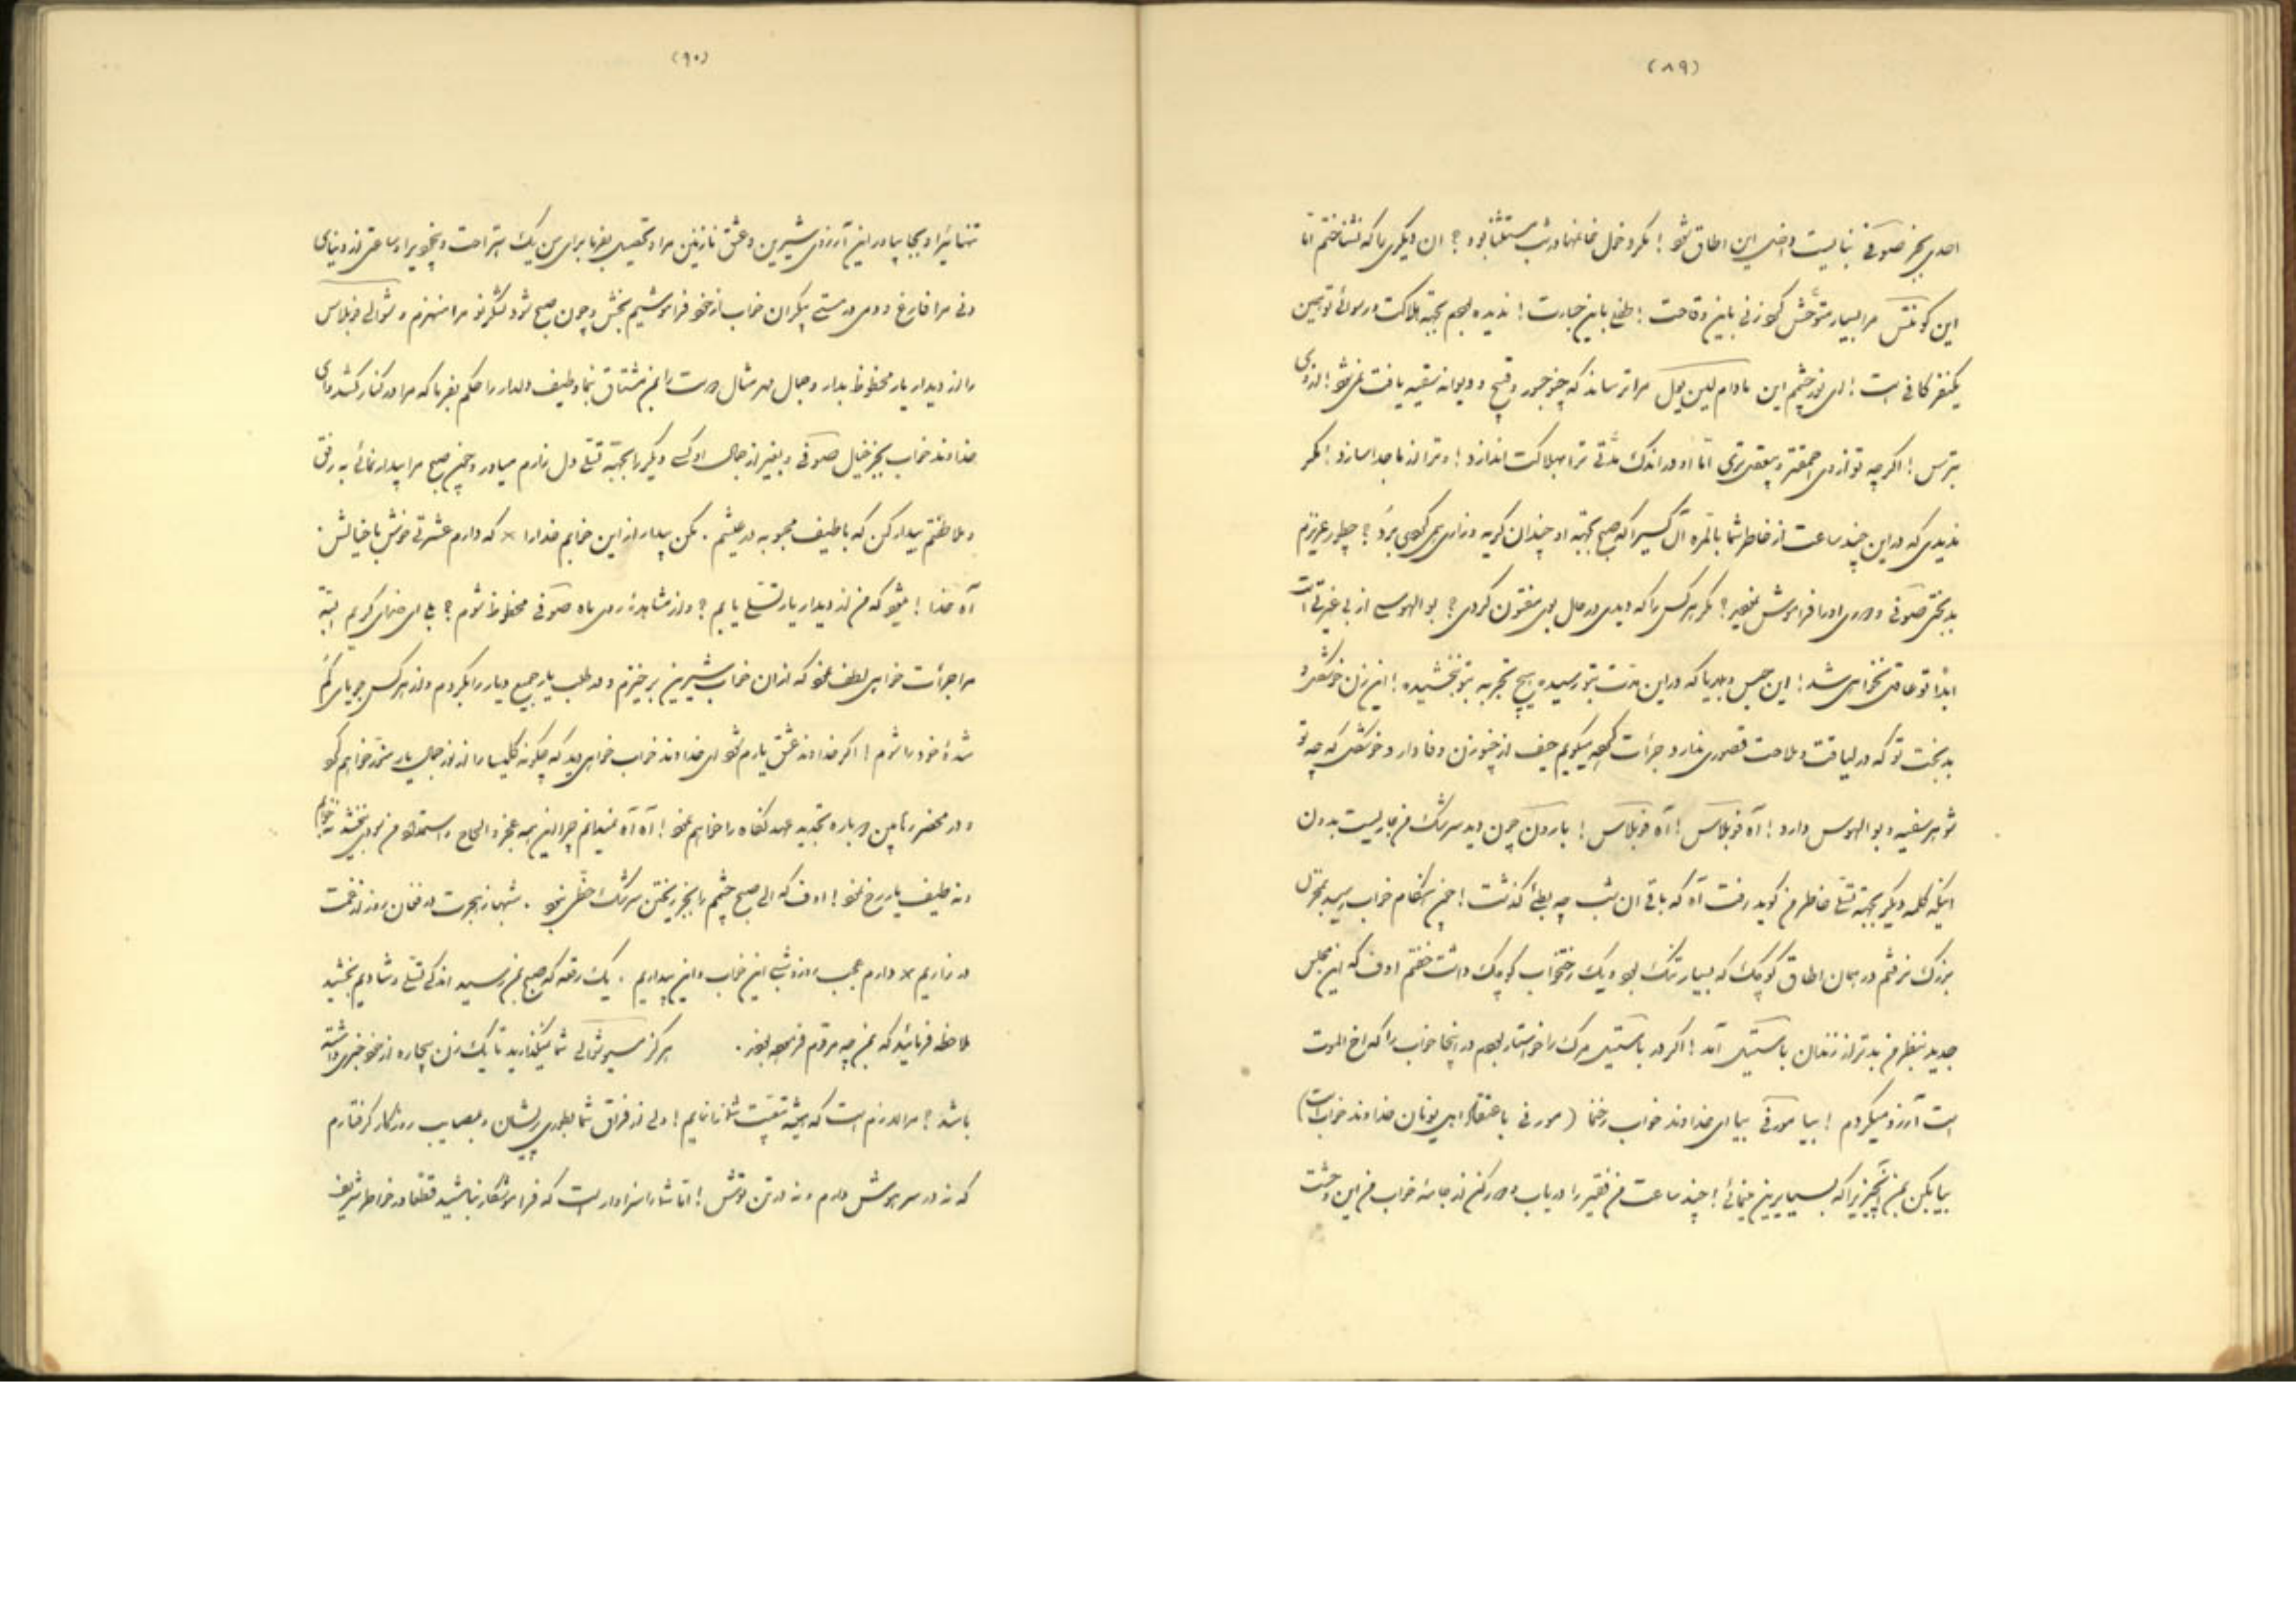 (۸۹)
احدی بجز صوفی نبایست داخل این اطاق شود! مگر دخول خانمها در شب مستثنا بود؟ ان دیگری را که نشناختم اما
این کونتس مرا بسیار متوحش کرد زنی باین وقاحت! باین جسارت! ندیده بودم بجهة هلاکت و رسوائی تو همین
یکنفر کافی است! ای نور چشم این مادام لین یول مرا ترساند که چنو جسور وقیح و دیوانه سفیه یافت نمی‌شود! از وی
بترس! اگر چه تو از وی احمقتر و بیعقلتری اما او در اندک مدتی ترا بهلاکت اندازد! و ترا از ما جدا سازد! مگر
ندیدی که در این چند ساعت از خاطر شما بالمره ان کسیرا که صبح بجهة او چندان گریه و زاری می‌کردی برد؟ چطور عزیزم
بدبختی صوفی و دوری او را فراموش نمودید؟ مگر هر کس را که دیدی در حال بوی مفتون گردی؟ بوالهوسی از بی غیرتی است
ابدا تو عاقل نخواهی شد! این حبس و بلایا که در این مدت بتو رسیده هیچ تجربه بتو نبخشیده! این زن خوشگل و
بدبخت تو که در لیاقت و ملاحت قصوری ندارد جرأت کرده میگویم حیف از چنو زن وفادار و خوشگل که چه تو
شوهر سفیه و بوالهوس دارد! آه فوبلاس! آه فوبلاس! بارون چون دید سرشک من جاریست بدون
اینکه کلمه دیگر بجهة تسلی خاطر من گوید رفت آه که باقی ان شب چه بطئ گذشت! چون هنگام خواب رسید بمنزل
بزرگ نرفتم در همان اطاق کوچک که بسیار تنگ بود و یک رختخواب کوچک داشت خفتم اوف که این مجلس
جدید بنظر من بدتر از زندان باستیل آمد! اگر در باستیل مرگ را خواستار بودم در اینجا خواب را که اخ الموت
است آرزو میکردم! بیا مورفی بیا ای خداوند خواب رخنما (مورفی باعتقاد اهل یونان خداوند خواب است)
بیا بکن بمن انچیزیرا که بسایرین مینمائی! چند ساعت من فقیر را دریاب و دور کن از جامه خواب من این وحشت
(۹۰)
تنهائیرا و بجا بیاور این آرزوی شیرین و عشق نازنین مرا و تحصیل بفرما برای من یک استراحت و بیخودیرا و ساعتی از دنیای
دنی مرا فارغ و دمی در مستی بیکران خواب از خود فراموشیم بخش و چون صبح شود لشکر نو مرا منهزم و شوالی فوبلاس
را از دیدار یار محظوظ بدار و جمال مهر مثال دوست را بمن مشتاق بنما و طیف دلدار را حکم بفرما که مرا در کنار کشد و ای
خداوند خواب بجز خیال صوفی و بغیر از جمال او کسی دیگر را بجهة تسلی دل زارم میاور و چون صبح مرا بیدار نمائی به رفق
و ملاطفتم بیدار کن که با طیف محبوبه در عیشم. مکن بیدار از این خوابم خدا را × که دارم عشرتی خوش با خیالش.
آه خدا! میشود که من از دیدار یار تسلی یابم؟ و از مشاهده روی ماه صوفی محظوظ شوم؟ بلی ای خدای کریم البته
مرا جرأت خواهی لطف نمود که از ان خواب شیرین برخیزم و در طلب یار جمیع دیار را بگردم و از هر کس جویای گم
شده خود را شوم! اگر خداوند عشق یارم شود ای خداوند خواب خواهی دید که چگونه کلیسا را از نور جمال یار منور خواهم کرد
و در محضر دوباره تجدید عهد نکاه را خواهم نمود! آه آه نمیدانم چرا این همه عجز و الحاح و استمداد من سودی نبخشد نه خوابم
و نه طیف یار رخ نمود! اوف که الی صبح چشم را بجز ریختن سرشک حظی نبود. شبها ز هجرت در فغان روز از غمت
در زاریم × دارم عجب روز و شبی این خواب و این بیداریم. یک رقعه که صبح بمن رسید اندکی تسلی و شادیم بخشید
ملاحظه فرمائید که بمن چه مرقوم فرموده بودند. هرگز مسیو شوالی شما نمیگذارید تا یک زن بیچاره از خود خبری داشته
باشد؟ مرا لازم است که همیشه شما نمایم! ولی از فراق شما بطوری پریشان و بمصایب روزگار گرفتارم
که نه در سر هوش دارم و نه در تن توش! اما شما را سزاوار است که فراموشکار نباشید قطعا در خاطر شریف